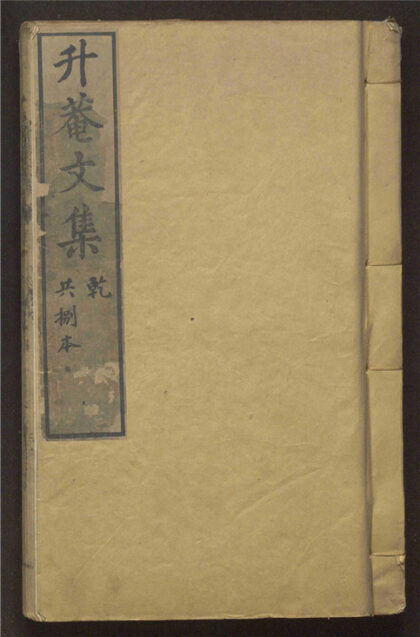 升菴文集
乾
共捌本